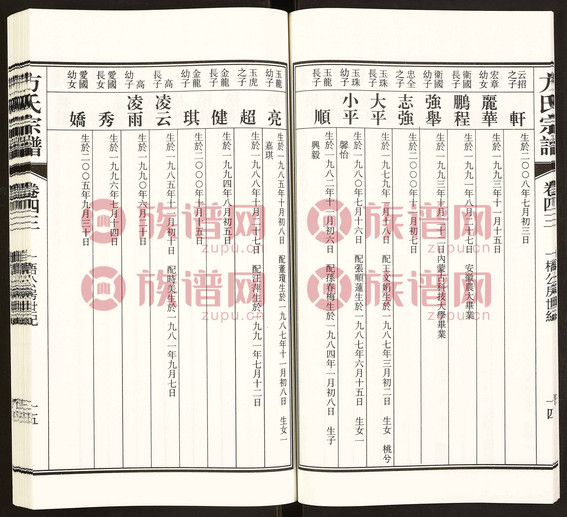 方氏宗譜
卷四三
一四
云招之子
軒
生於二〇〇八年七月初三日
宏章幼女
麗華
生於一九九三年十一月十五日 安徽農大畢業
衛國長子
鵬程
生於一九九〇年七月初七日
衛國幼子
強舉
生於一九九三年十月二十二日內蒙古科技大學畢業
忠全之子
志強
生於二〇〇〇年二月初六日
玉珠長子
大平
生於一九七九年十月十六日 配王文娟生於一九八一年十月初二日 生女 桃兮
玉珠幼子
小平
生於一九八二年十月二十日 配張順蓮生於一九八七年六月十五日 生女一
馨怡
玉龍長子
順
生於一九八二年十二月初六日 配孫春梅生於一九八四年一月初八日 生子
興毅
玉龍幼子
亮
生於一九八五年十月初八日 配董瓊生於一九八七年十一月初八日 生女一
嘉琪
玉虎之子
超
生於一九八八年九月初六日 配汪萍生於一九九一年七月十二日
金龍長子
健
生於一九九四年八月初五日
金龍幼子
琪
生於二〇〇〇年十月十一日
高長子
凌云
生於一九八五年十一月初十日 配時美生於一九八一年九月七日
高幼子
凌雨
生於一九九〇年六月二十日
愛國長女
秀
生於一九九六年七月十四日
愛國幼女
嬌
生於二〇〇五年九月三十日
方氏宗譜
卷四三
一五
族谱网
zupu.cn
族谱网
zupu.cn
族谱网
zupu.cn
族谱网
zupu.cn